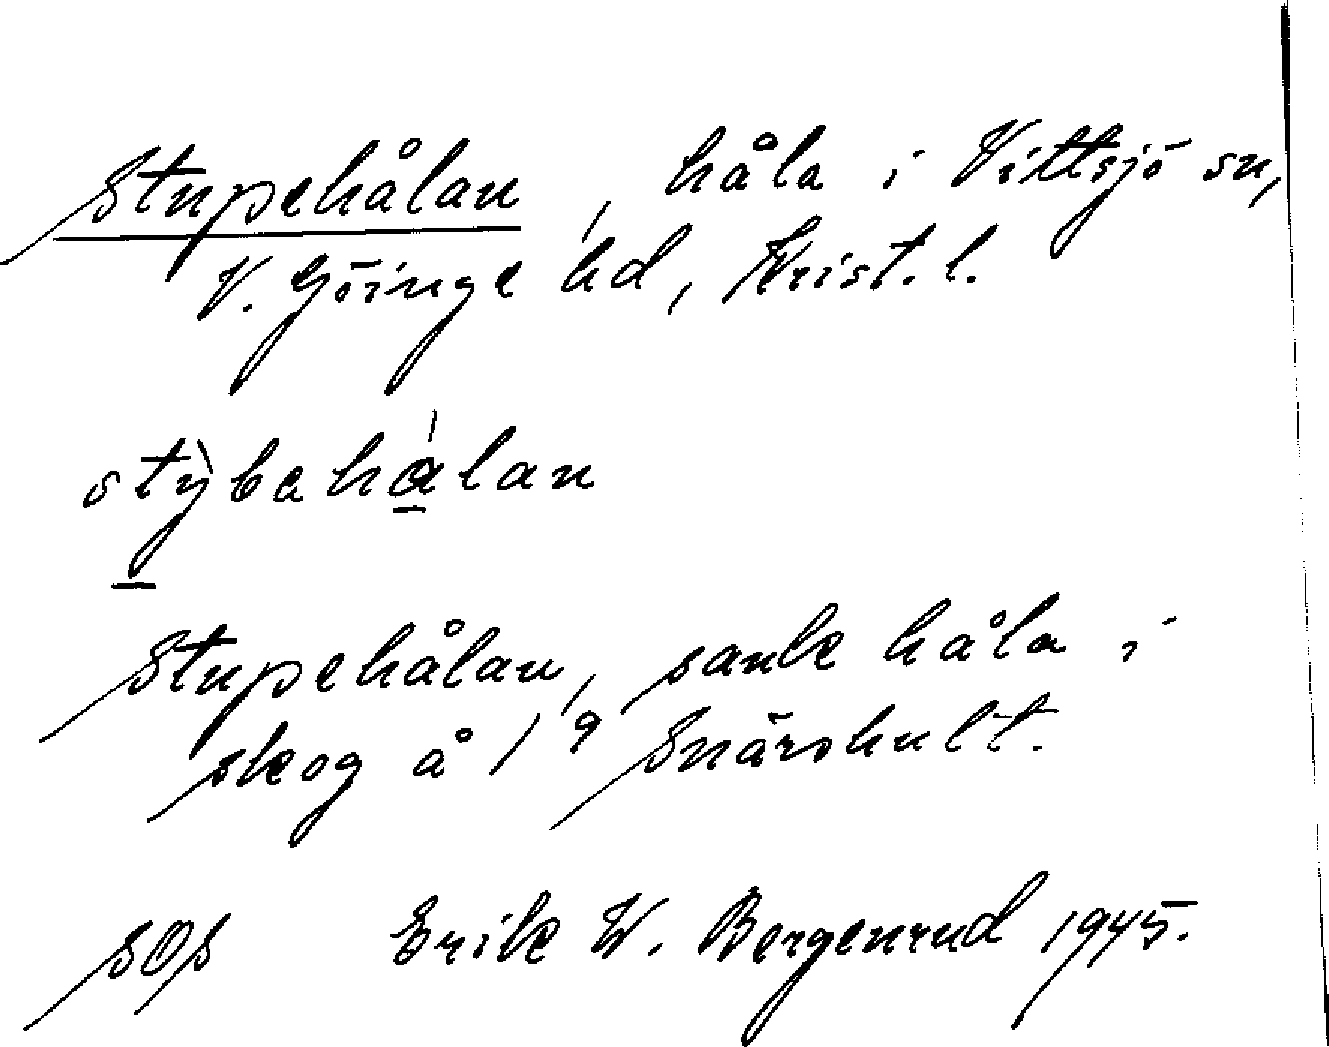 Stupehålan, håla i Vittsjö sn,
V. Göinge hd, Krist. l.
stỳbahálan
Stupehålan, sank håla i
skog å 1⁹ Snärshult.
SOS Erik W. Bergenrud 1945.